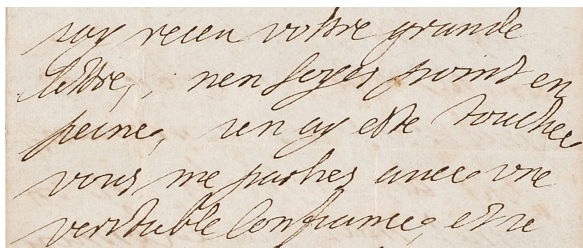 jay receu vostre grande
lettre, nen soyes point en
peine, jen ay este touchee
vous me parles avec vne
veritable confiance, estre